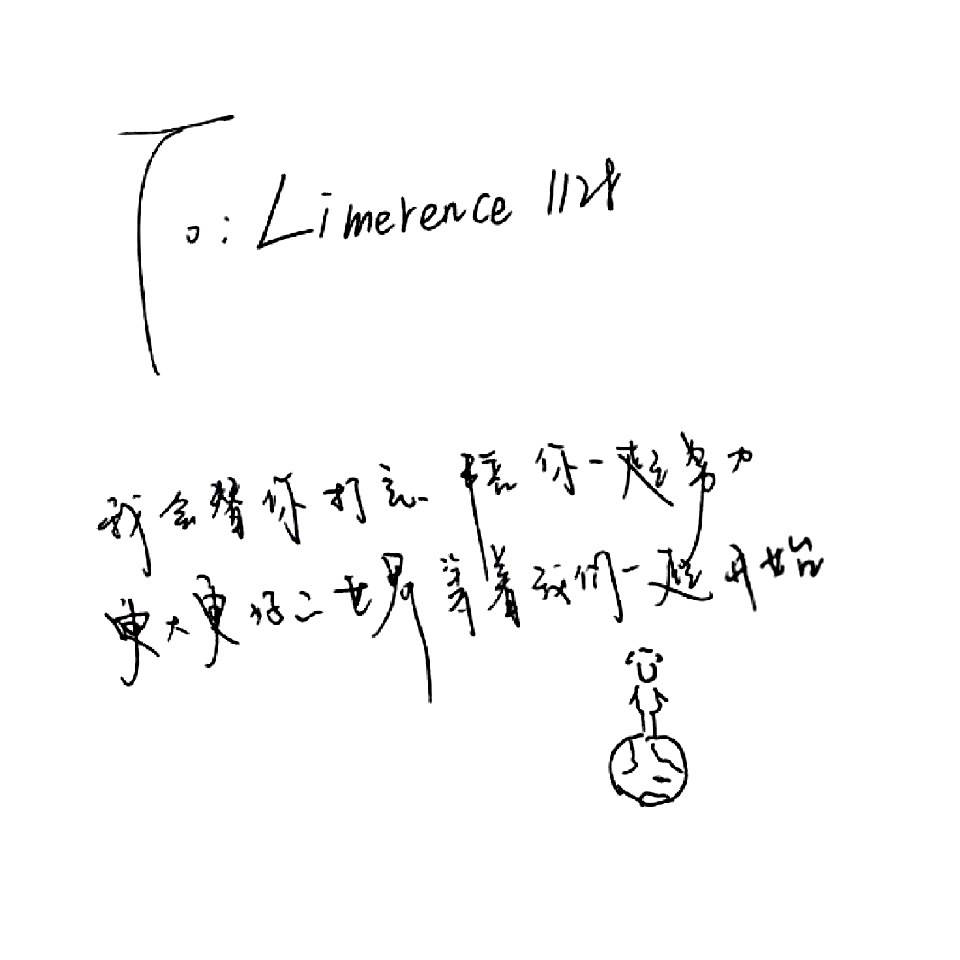 To: Limerence 1128
我会替你打气 陪你一起努力
更大更好的世界等着我们一起开始